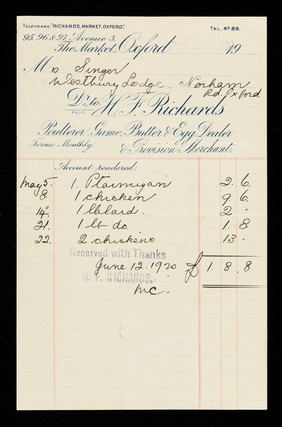 TELEGRAMS: "RICHARDS, MARKET, OXFORD." TEL. Nº 89.
95, 96, & 97, Avenue 3,
The Market, Oxford 19
Mrs Singer
Westbury Lodge, Norham Rd. Oxford
Dr. to H. F. Richards
Poulterer, Game, Butter & Egg Dealer
Terms, Monthly. & Provision Merchant.
Account rendered.
May 5. 1 Ptarmigan 2. 6.
8 1 chicken 9 6.
14 1 lb lard. 2 .
21. 1 lb do. 1 8
22. 2 chickens 13 .
Received with Thanks
June 12. 1920 £ 1. 8. 8
H. F. RICHARDS.